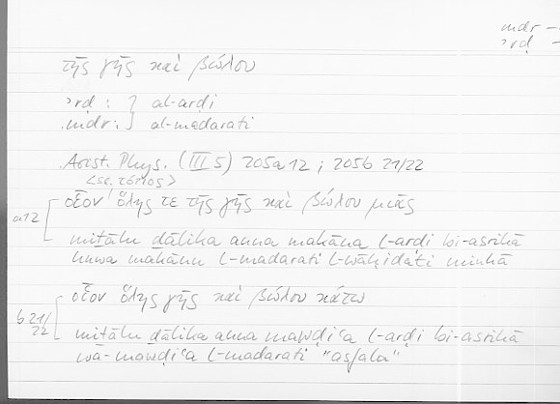 mdr –
ʾrḍ –
τῆς γῆς καὶ βώλου
ʾrḍ : } al-arḍi
mdr : } al-madarati
Arist. Phys. (III 5) 205a12 ; 205b 21/22
<sc. τόπος>
a12 οἷον ὅλης τε τῆς γῆς καὶ βώλου μιᾶς
miṯālu ḏālika anna makāna l-arḍi bi-asrihā
huwa makānu l-madarati l-wāḥidati minhā
b21/22 οἷον ὅλης γῆς καὶ βώλου κάτω
miṯālu ḏālika anna mawḍiʿa l-arḍi bi-asrihā
wa-mawḍiʿa l-madarati "asfalu"